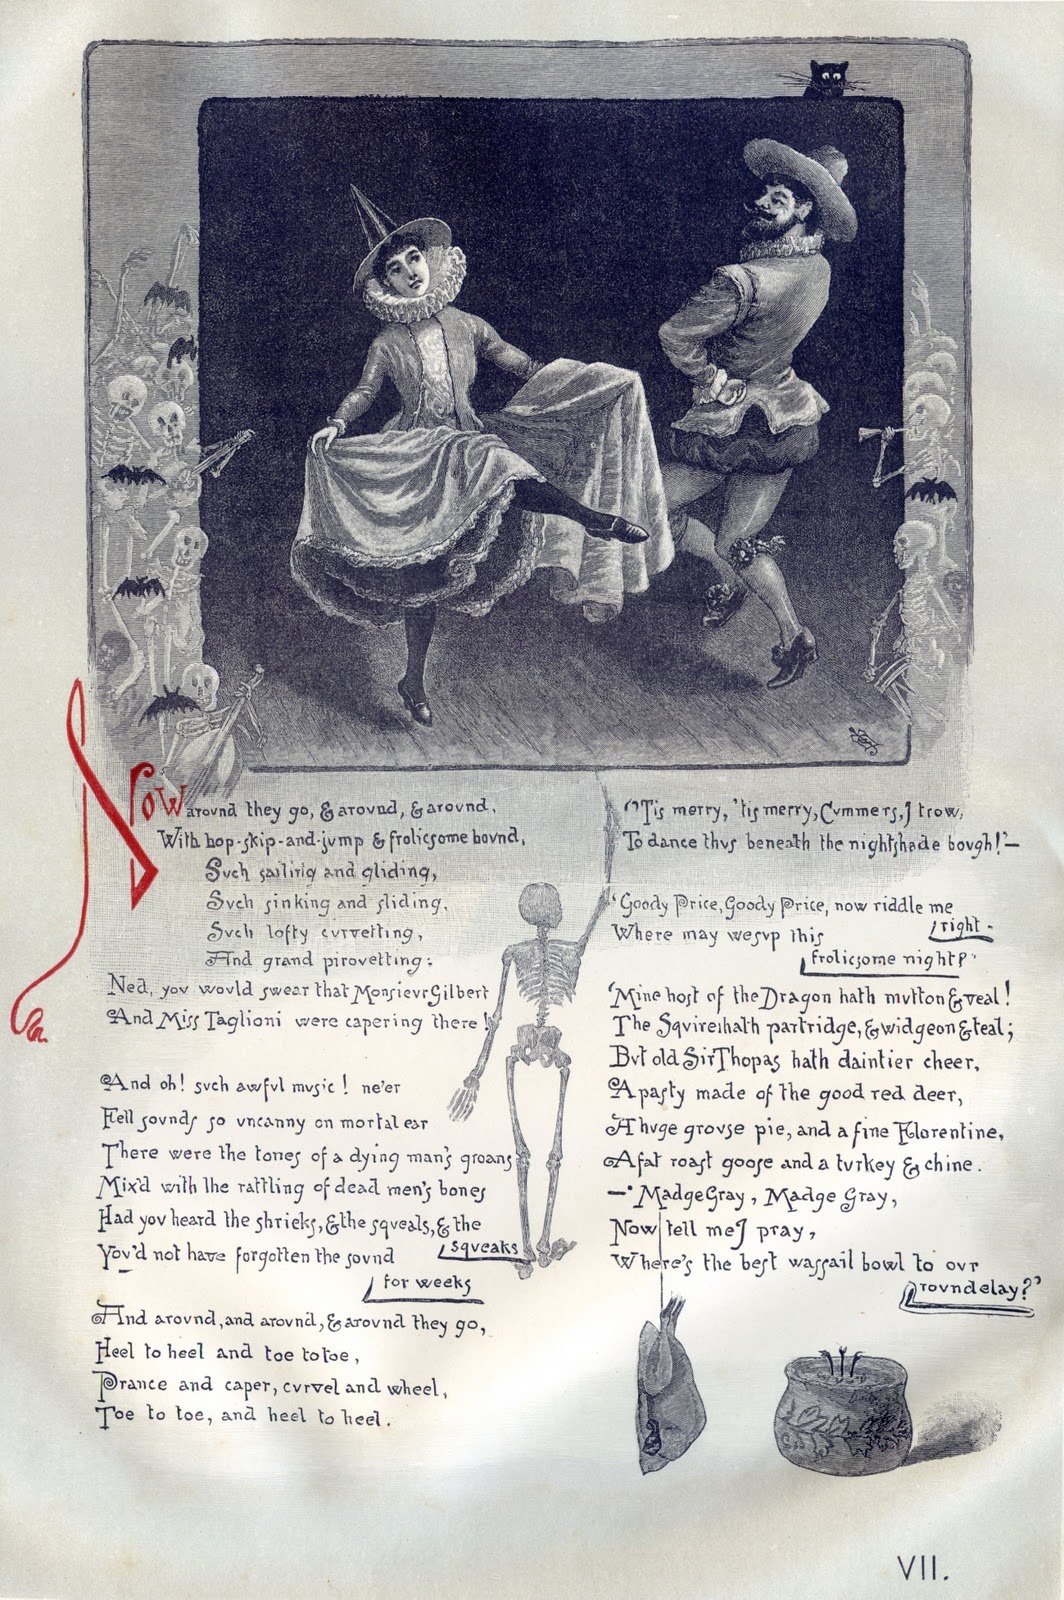 Now around they go, & around, & around,
With hop-skip-and-jump & frolicsome bound,
Such sailing and gliding,
Such sinking and sliding,
Such lofty curvetting,
And grand pirouetting;
Ned, you would swear that Monsieur Gilbert
And Miss Taglioni were capering there!
And oh! such awful music! ne'er
Fell sounds so uncanny on mortal ear
There were the tones of a dying man's groans
Mix'd with the rattling of dead men's bones
Had you heard the shrieks, & the squeals, & the
squeaks
You'd not have forgotten the sound
for weeks
And around, and around, & around they go,
Heel to heel and toe to toe,
Prance and caper, curvel and wheel,
Toe to toe, and heel to heel.
''Tis merry, 'tis merry, Cummers, I trow,
To dance thus beneath the nightshade bough!'—
'Goody Price, Goody Price, now riddle me
right.
Where may we sup this
frolicsome night?'
'Mine host of the Dragon hath mutton & veal!
The Squire hath partridge, & widgeon & teal;
But old Sir Thopas hath daintier cheer,
A pasty made of the good red deer,
A huge grouse pie, and a fine Florentine,
A fat roast goose and a turkey & chine.
—'Madge Gray, Madge Gray,
Now tell me I pray,
Where's the best wassail bowl to our
roundelay?'
VII.